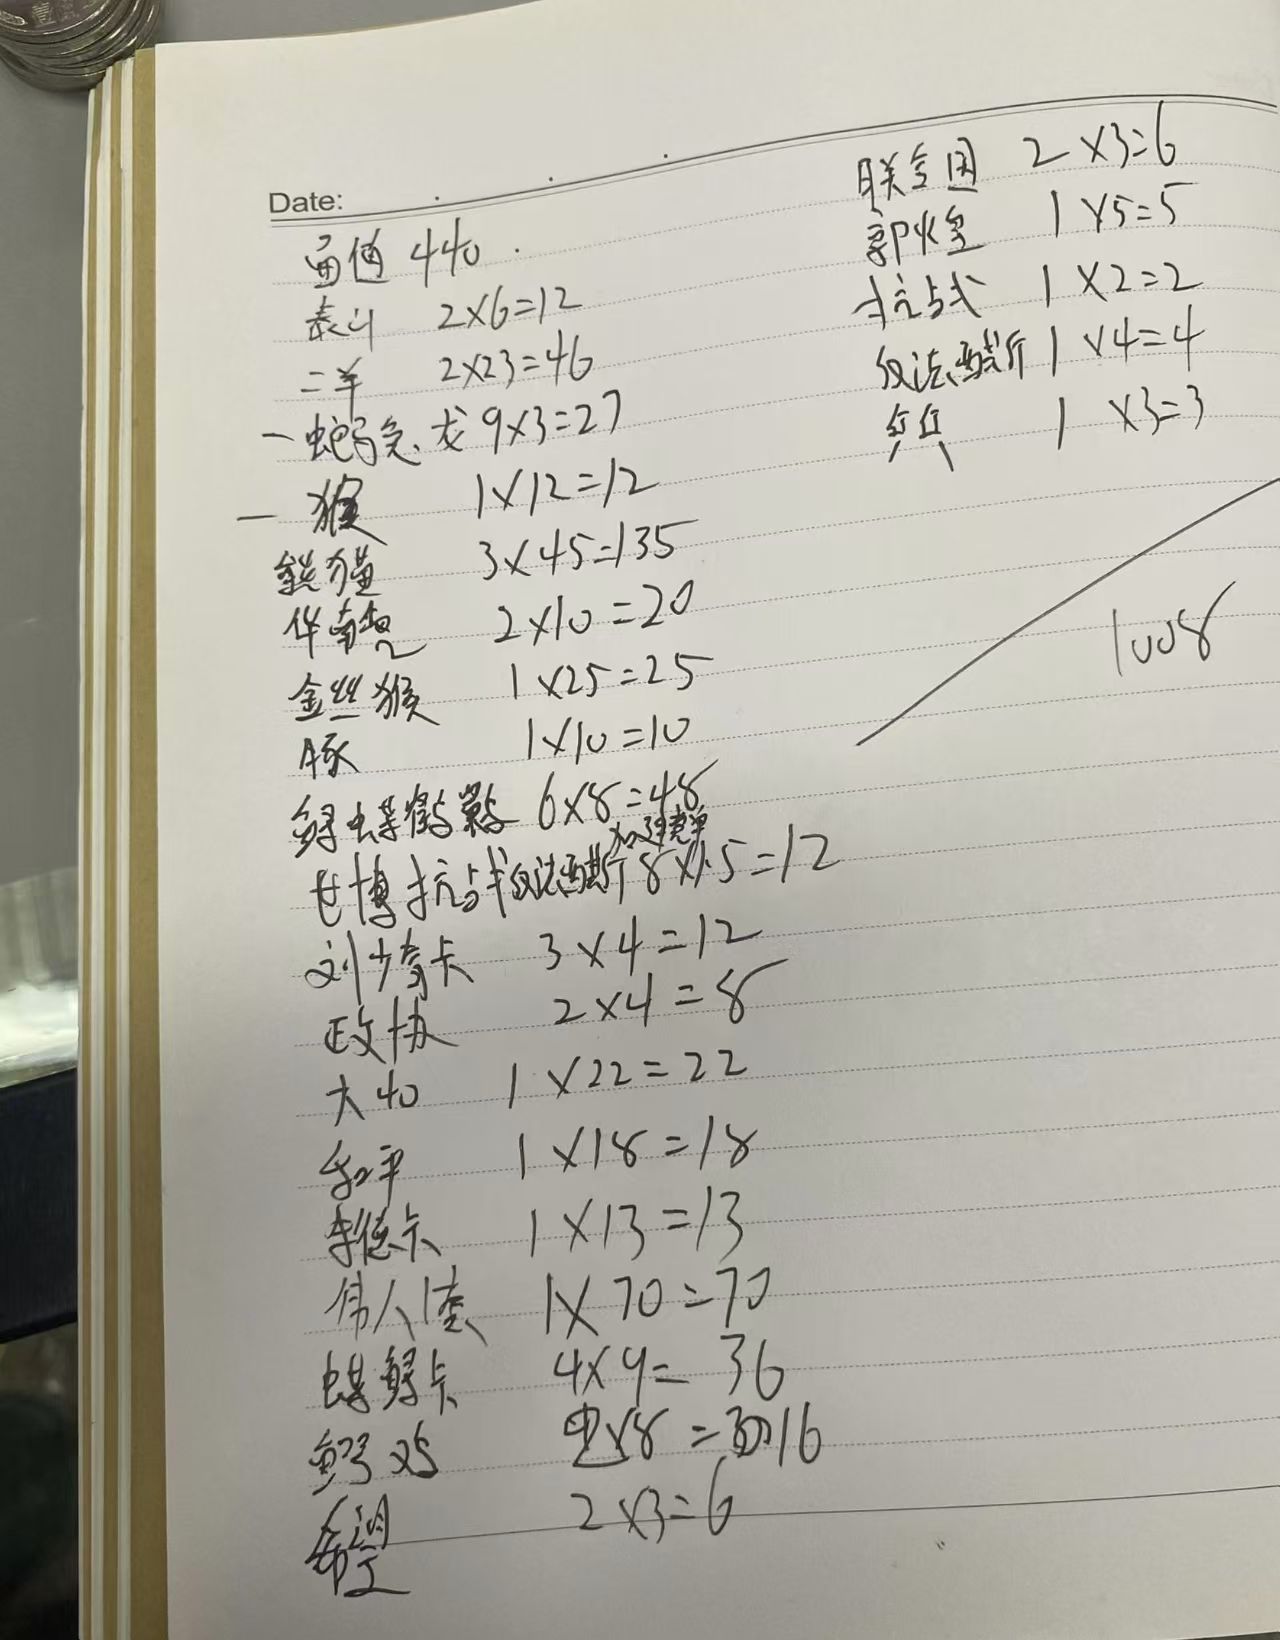 Date:
面值 440
泰山 2×6=12
二羊 2×23=46
一 蛇马兔、龙 9×3=27
一 猴 1×12=12
熊猫 3×45=135
华南虎 2×10=20
金丝猴 1×25=25
豚 1×10=10
鲟蝶鹤 6×8=48
加速寄单
世博抗战 8×1.5=12
刘少奇卡 3×4=12
政协 2×4=8
大40 1×22=22
和平 1×18=18
李德卡 1×13=13
伟人1套 1×70=70
蝶鲟卡 4×9=36
鳄鸡 ×8=16
希望 2×3=6
联合国 2×3=6
1×5=5
抗战 1×2=2
反法西斯 1×4=4
1×3=3
1008